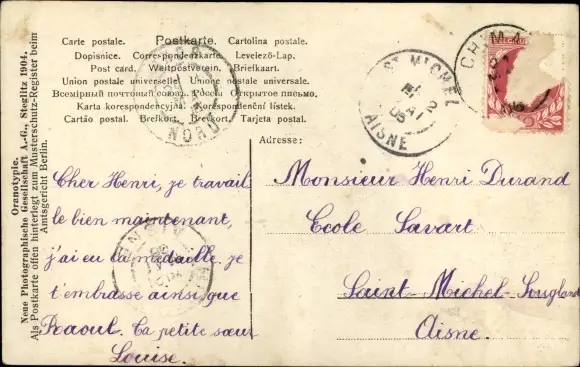 Carte postale. Postkarte. Cartolina postale.
Dopisnice. Correspondenzkarte. Levelező-Lap.
Post card. Weltpostverein. Briefkart.
Union postale universelle. Unione postale universale.
Всемірный почтовый союз. Россія Открытое письмо.
Karta korespondencyjna. Korespondenční lístek.
Cartão postal. Brefkort. Brevkort. Tarjeta postal.
Oranotypie.
Neue Photographische Gesellschaft A.-G., Steglitz 1904.
Als Postkarte offen hinterlegt zum Musterschutz-Register beim
Amtsgericht Berlin.
NORD
ST MICHEL
AISNE
CHIMA
Adresse:
Cher Henri, je travail
le bien maintenant,
j'ai eu la médaille. je
t'embrasse ainsi que
Raoul. Ta petite sœur
Louise.
Monsieur Henri Durand
Ecole Savart
Saint-Michel-Sougland
Aisne.